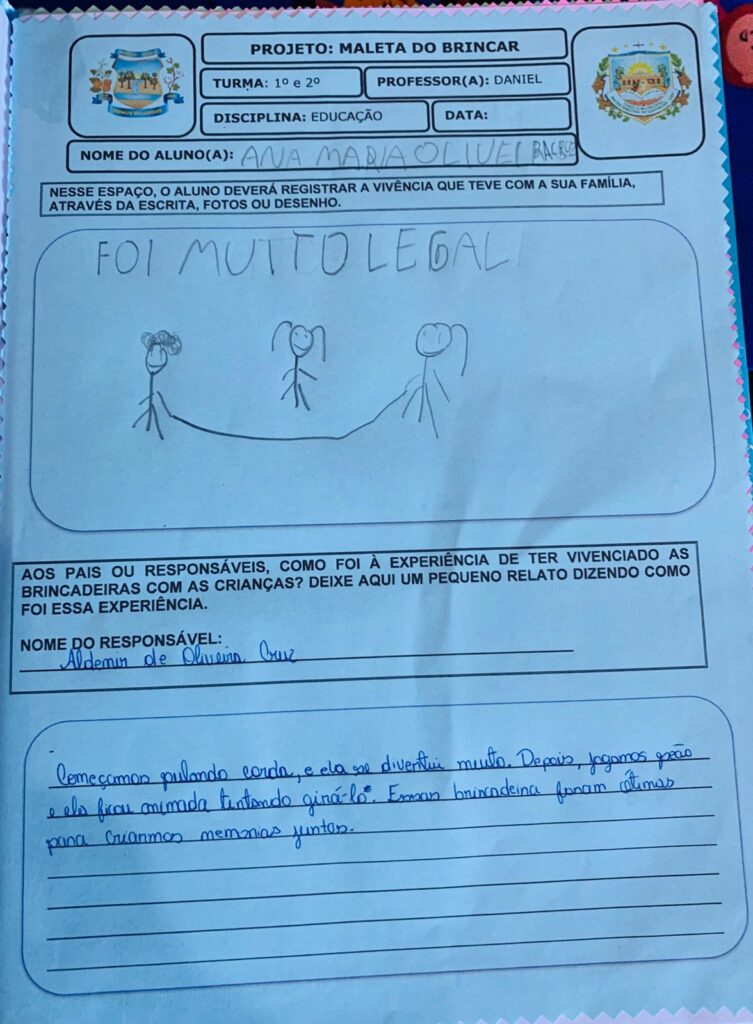 PROJETO: MALETA DO BRINCAR
TURMA: 1º e 2º
PROFESSOR(A): DANIEL
DISCIPLINA: EDUCAÇÃO
DATA:
NOME DO ALUNO(A): ANA MARIA OLIVEIRA CRUZ
NESSE ESPAÇO, O ALUNO DEVERÁ REGISTRAR A VIVÊNCIA QUE TEVE COM A SUA FAMÍLIA,
ATRAVÉS DA ESCRITA, FOTOS OU DESENHO.
FOI MUITO LEGAL
AOS PAIS OU RESPONSÁVEIS, COMO FOI À EXPERIÊNCIA DE TER VIVENCIADO AS
BRINCADEIRAS COM AS CRIANÇAS? DEIXE AQUI UM PEQUENO RELATO DIZENDO COMO
FOI ESSA EXPERIÊNCIA.
NOME DO RESPONSÁVEL:
Aldemir de Oliveira Cruz
Começamos pulando corda, e ela se divertiu muito. Depois, jogamos peão
e ela ficou animada tentando girá-lo. Essas brincadeira foram ótimas
para criarmos memorias juntos.